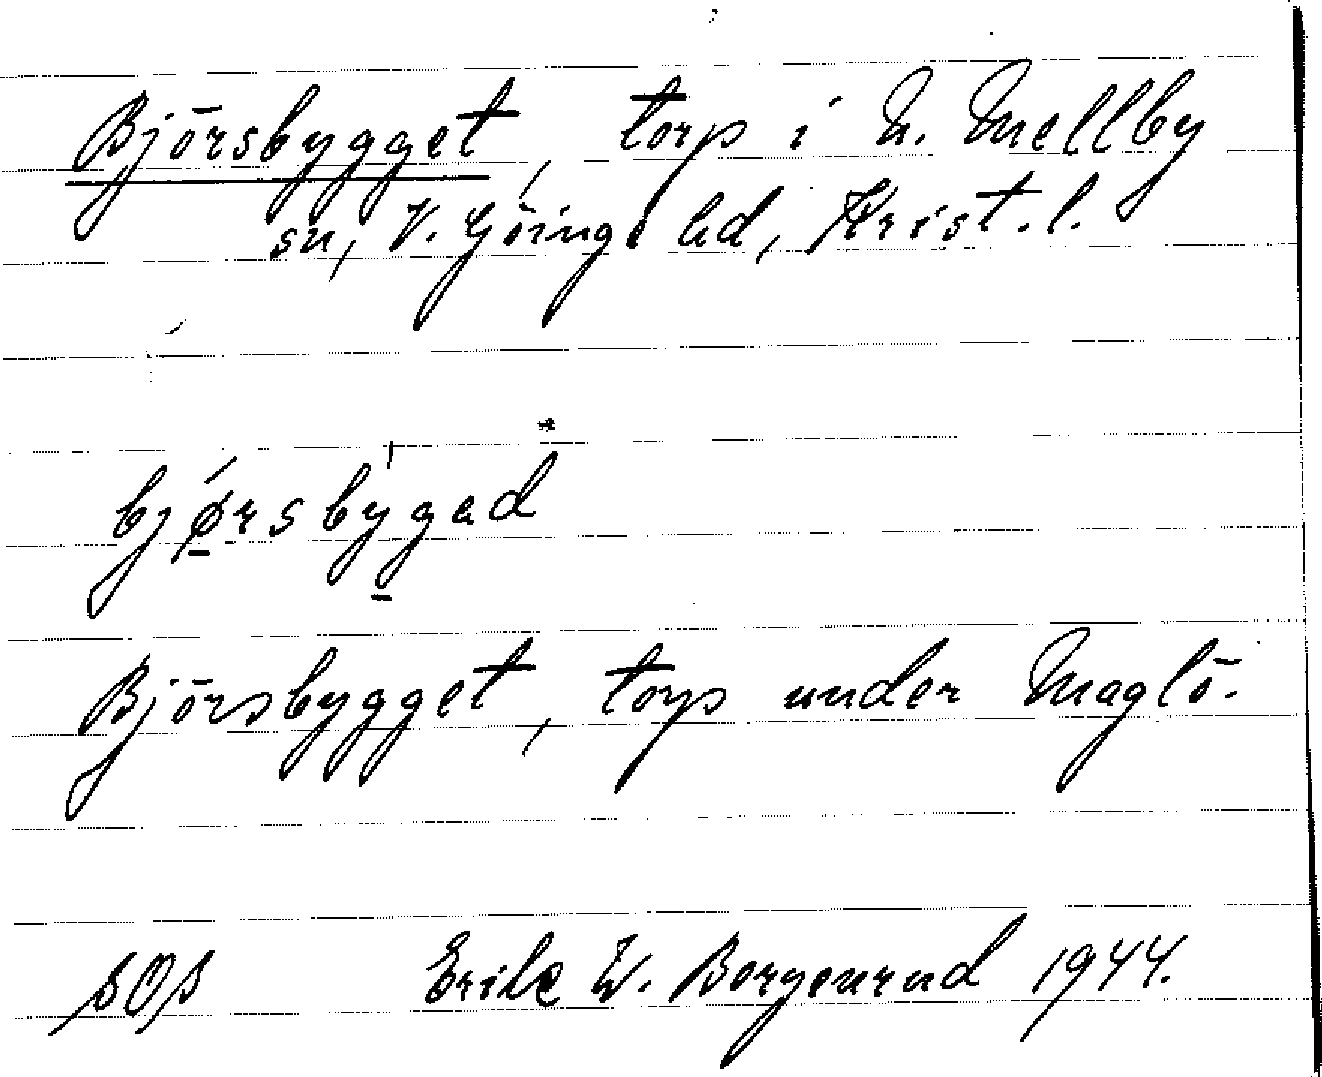 Björsbygget, torp i N. Mellby
sn, V. Göinge hd, Krist. l.
bjørsbygad
Björsbygget, torp under Maglö.
SOS Erik W. Borgenrud 1944.